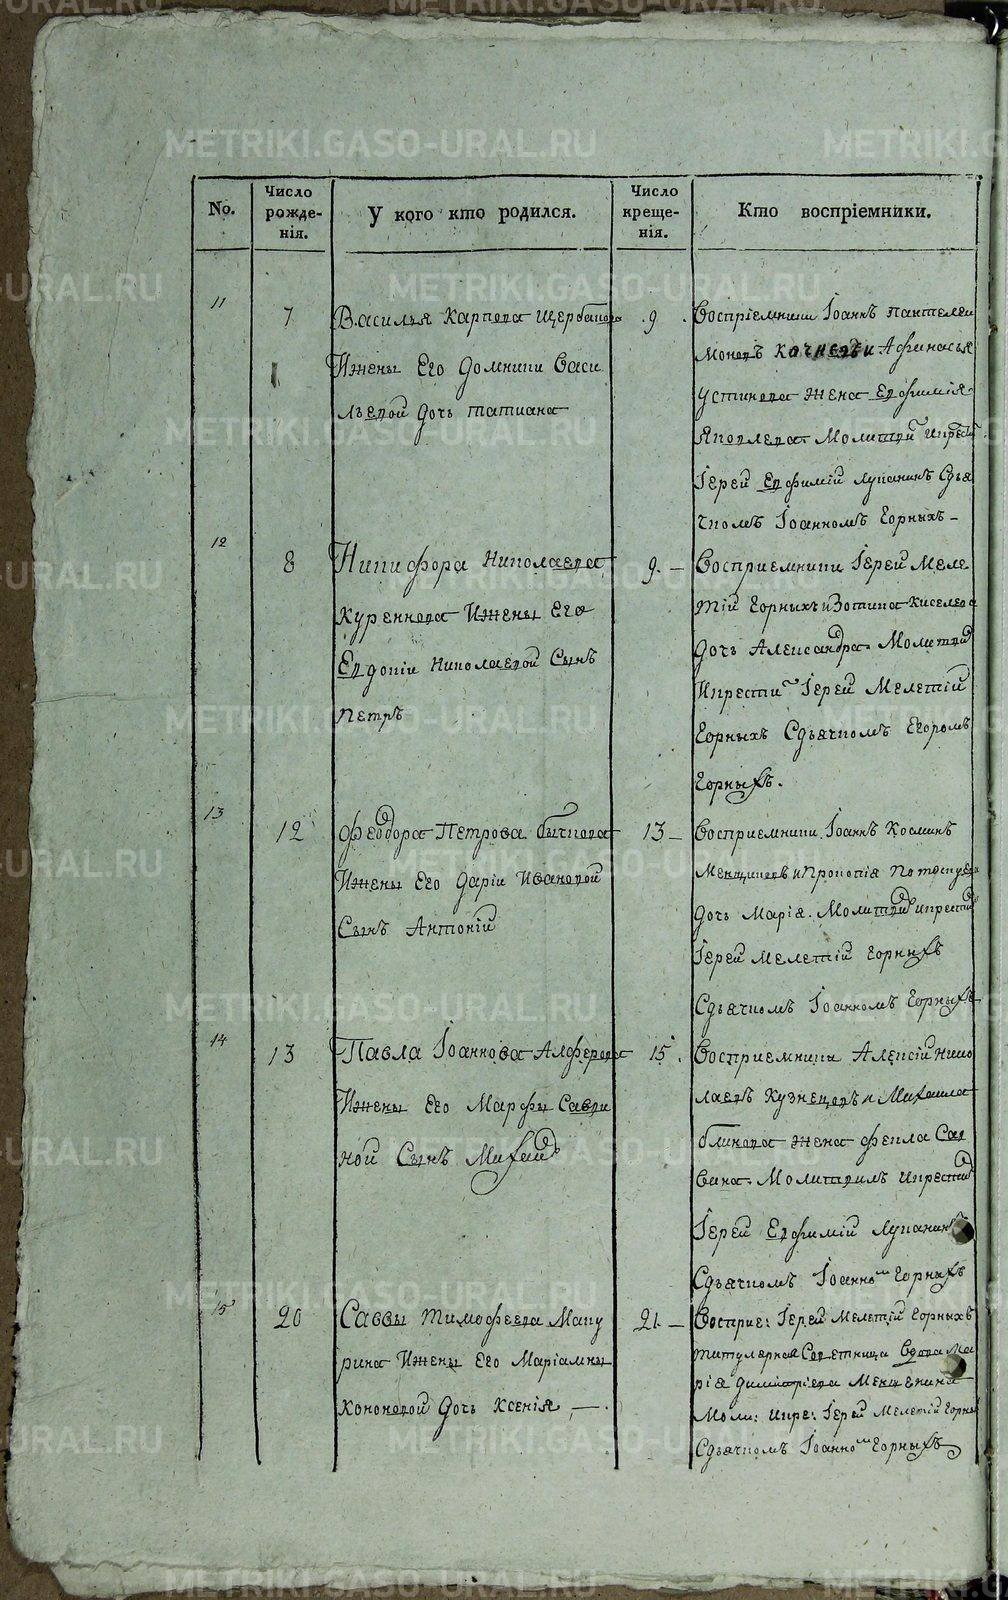 No.
Число рожде-нія.
У кого кто родился.
Число креще-нія.
Кто воспріемники.
11
7
Василья Карпова Щербакова
Ижены Его Домники Васи
льевой дочь Татиана
9
Воспріемники Іоаннъ Пантелей
моновъ Кочневъ и Афонасья
Устинова жена Евфимія
Яковлева. Молитвй икрестй
Іерей Евфимій Лукани​нъ Сдья
чкомъ Іоанномъ Горныхъ
12
8
Никифора Николаева
Куреннова Ижены Его
Евдокіи Николаевой Сынъ
Петръ
9.
Восприемники Іерей Меле
тій Горныхъ и Зотика Киселева
дочь Александра. Молитвй
Икрести Іерей Мелетій
Горныхъ Сдьячкомъ Егоромъ
Горныхъ.
13
12
Феодора Петрова Бычкова
Ижены Его Даріи Ивановой
Сынъ Антоній
13
Восприемники Іоаннъ Косминъ
Менщиковъ и Прокопія
дочь Марія. Молитвй икрестй
Іерей Мелетій Горныхъ
Сдьячкомъ Іоанномъ Горныхъ
14
13
Павла Іоаннова Алферова
Ижены Его Марфы Савви
ной Сынъ Михаилъ
15.
Восприемники Алексій Нико
лаевъ Кузнецовъ и Михаила
Блинова жена Фекла Сав
вина. Молитвилъ икрестй
Іерей Евфимій Луканинъ
Сдьячкомъ Іоанном Горныхъ
15
20
Саввы Тимофеева Маку
рина Ижены Его Маріамны
Кононовой Дочь Ксенія,
21.
Восприе: Іерей Мелетій Горныхъ
титулярная Советница Вдова Ма
рія Димитріева Менщенина
Моли: икре: Іерей Мелетій Горных
Сдьячкомъ Іоанном Горныхъ
METRIKI.GASO-URAL.RU